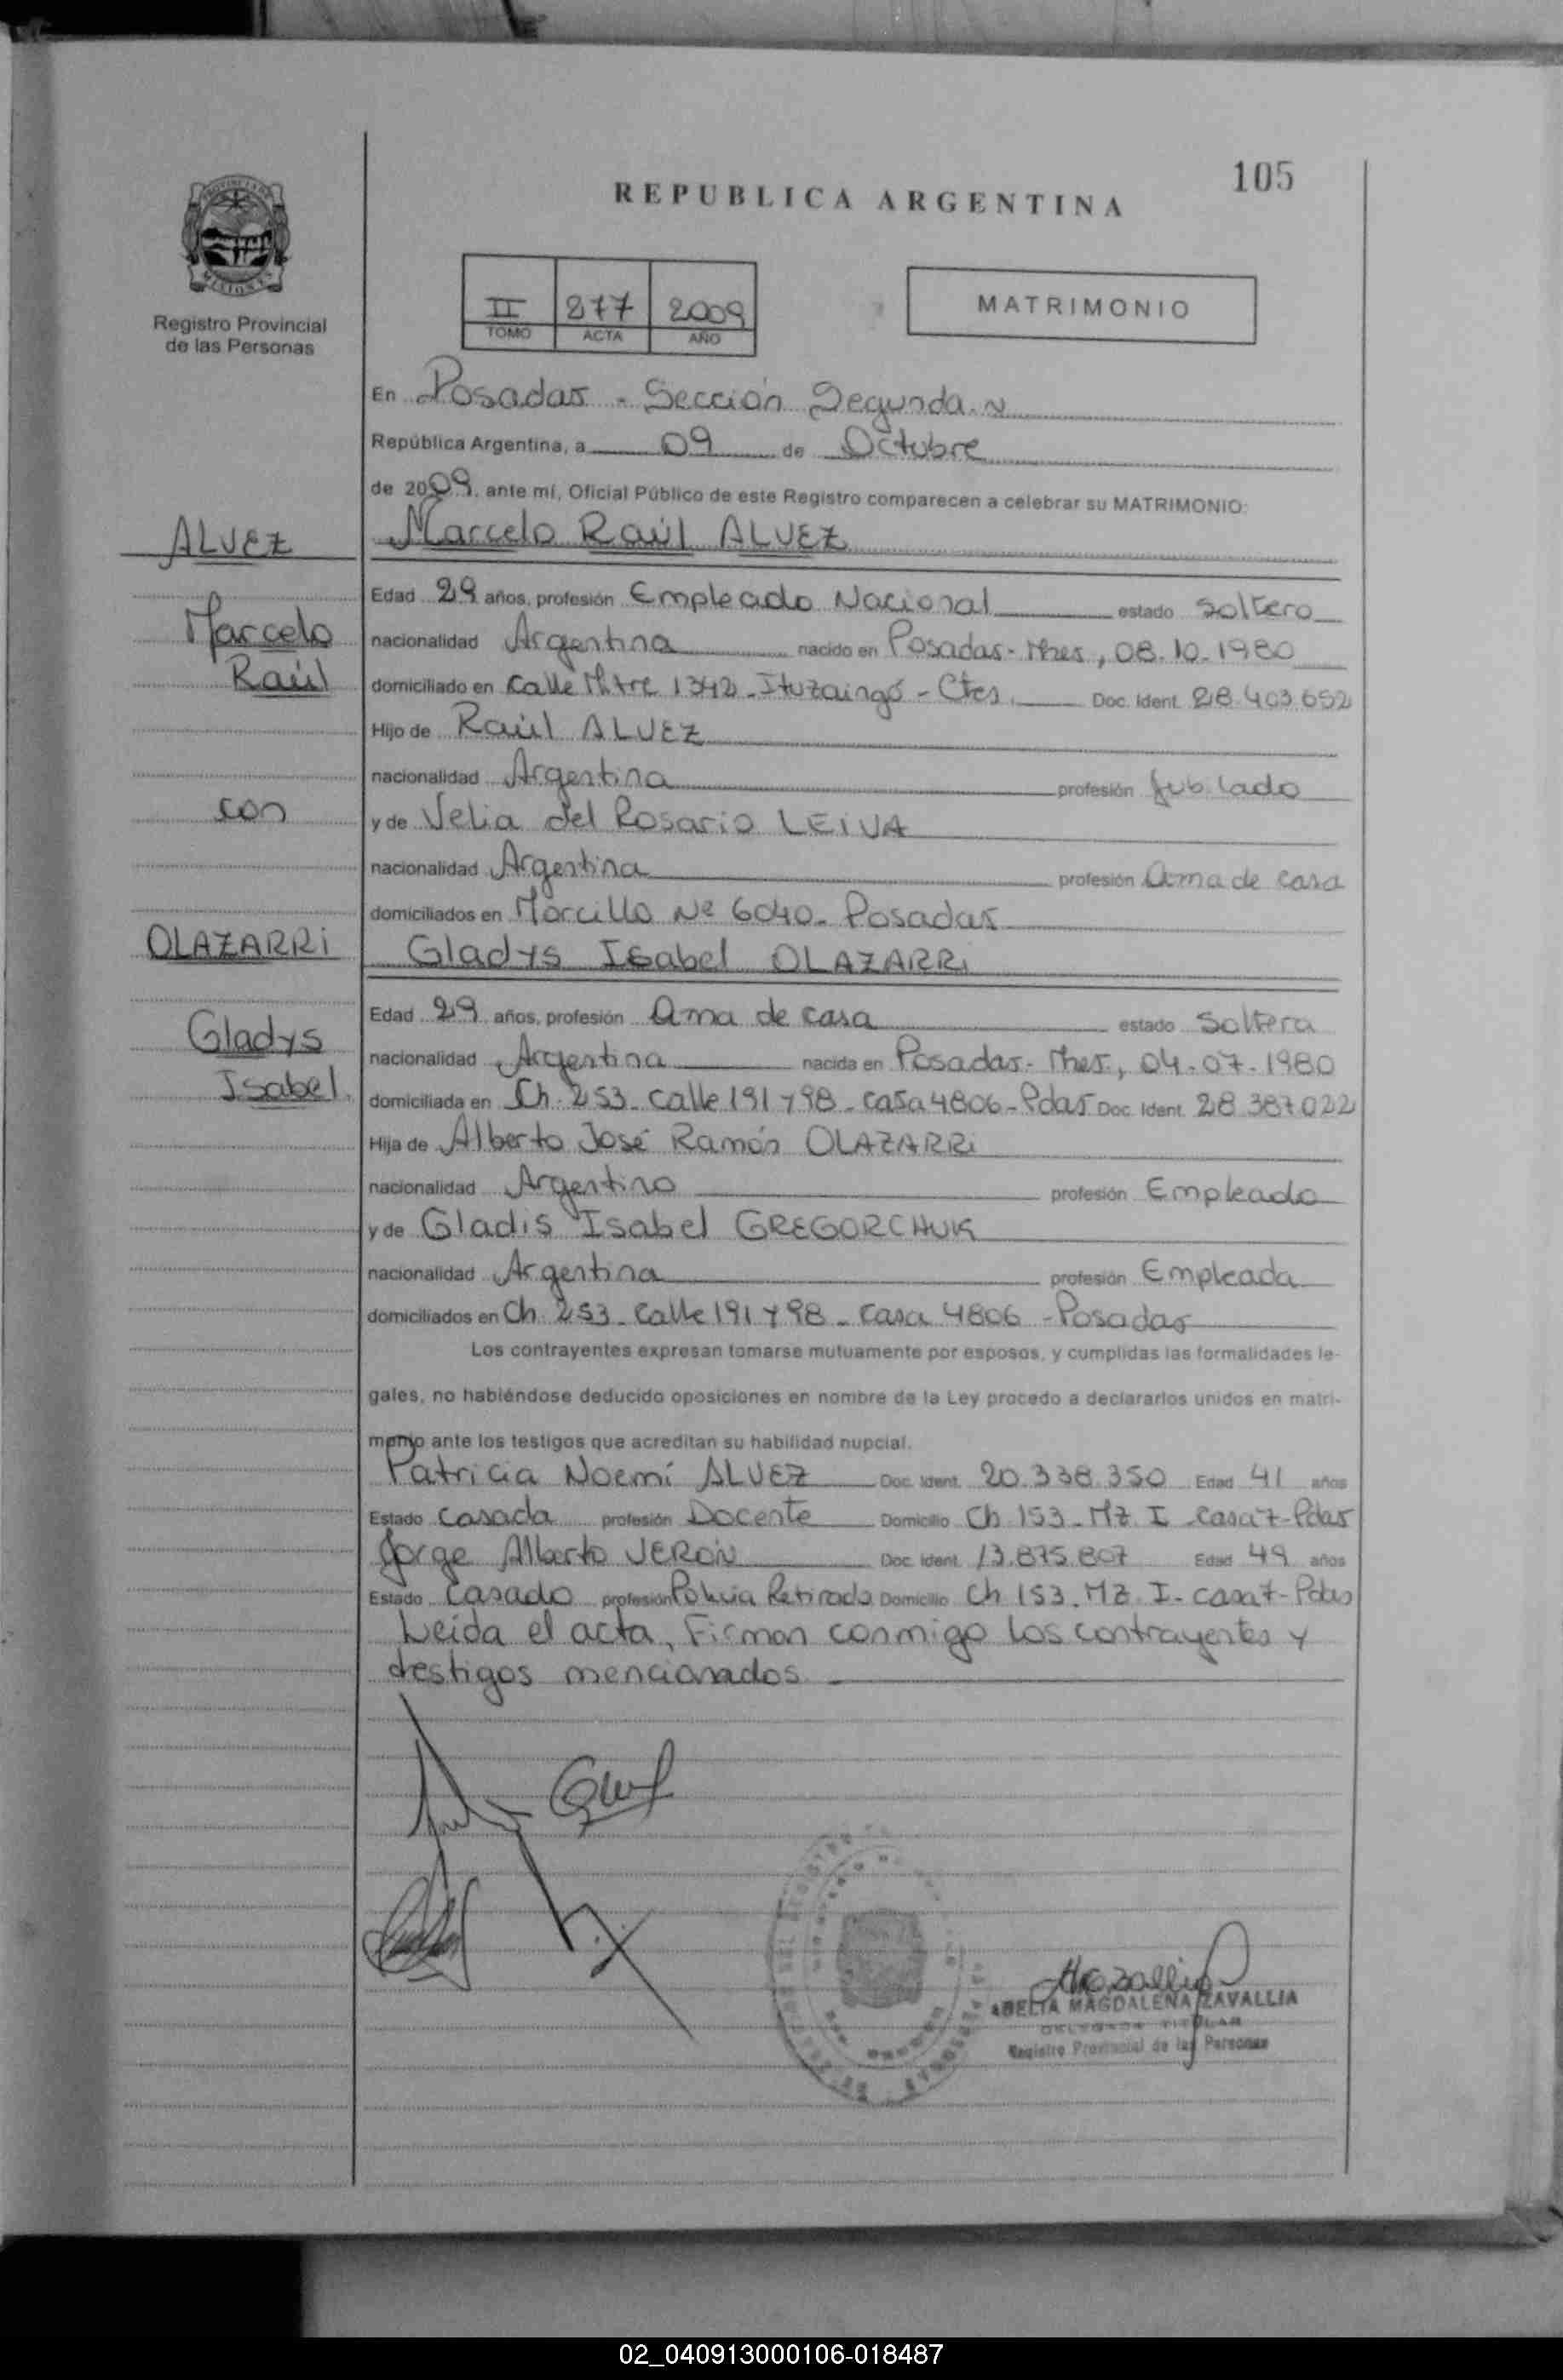 105
REPUBLICA ARGENTINA
II 277 2009
TOMO ACTA AÑO
MATRIMONIO
Registro Provincial
de las Personas
En Posadas - Sección Segunda. ~
República Argentina, a 09 de Octubre
de 2009. ante mí, Oficial Público de este Registro comparecen a celebrar su MATRIMONIO:
ALVEZ
Marcelo Raúl ALVEZ
Edad 29 años, profesión Empleado Nacional estado Soltero
Marcelo
nacionalidad Argentina nacido en Posadas - Mnes, 08.10.1980
Raúl
domiciliado en Calle Mitre 1342 - Ituzaingó - Ctes. Doc. Ident. 28.403.652
Hijo de Raúl ALVEZ
nacionalidad Argentina profesión Jubilado
con
y de Velia del Rosario LEIVA
nacionalidad Argentina profesión Ama de casa
domiciliados en Morcillo Nº 6040 - Posadas
OLAZARRI
Gladys Isabel OLAZARRI
Edad 29 años, profesión Ama de casa estado Soltera
Gladys
nacionalidad Argentina nacida en Posadas - Mnes., 04-07-1980
Isabel.
domiciliada en Ch. 253 - Calle 191 y 98 - casa 4806 - Pdas Doc. Ident. 28 387022
Hija de Alberto José Ramón OLAZARRI
nacionalidad Argentino profesión Empleado
y de Gladis Isabel GREGORCHUK
nacionalidad Argentina profesión Empleada
domiciliados en Ch. 253 - Calle 191 y 98 - Casa 4806 - Posadas
Los contrayentes expresan tomarse mutuamente por esposos, y cumplidas las formalidades le-
gales, no habiéndose deducido oposiciones en nombre de la Ley procedo a declararlos unidos en matri-
monio ante los testigos que acreditan su habilidad nupcial.
Patricia Noemí ALVEZ Doc. Ident. 20.338.350 Edad 41 años
Estado Casada profesión Docente Domicilio Ch 153 - Mz. I - casa 7 - Pdas
Jorge Alberto VERÓN Doc. Ident. 13.875.807 Edad 49 años
Estado Casado profesión Policía Retirado Domicilio Ch 153. MZ. I - casa 7 - Pdas
Leída el acta, Firman conmigo los contrayentes y
testigos mencionados.
MAGDALENA ZAVALLIA
DELEGADA TITULAR
Registro Provincial de las Personas
02_040913000106-018487